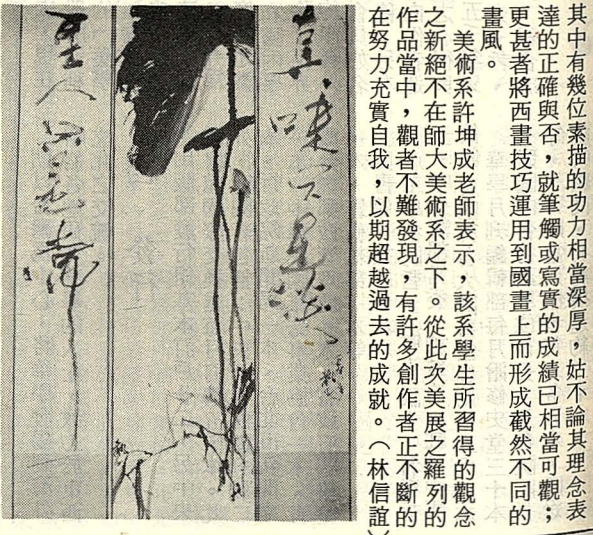 其中有幾位素描的功力相當深厚，姑不論其理念表
達的正確與否，就筆觸或寫實的成績已相當可觀；
更甚者將西畫技巧運用到國畫上而形成截然不同的
畫風。
美術系許坤成老師表示，該系學生所習得的觀念
之新絕不在師大美術系之下。從此次美展之羅列的
作品當中，觀者不難發現，有許多創作者正不斷的
在努力充實自我，以期超越過去的成就。（林信誼）
真味只是淡
至人只是常